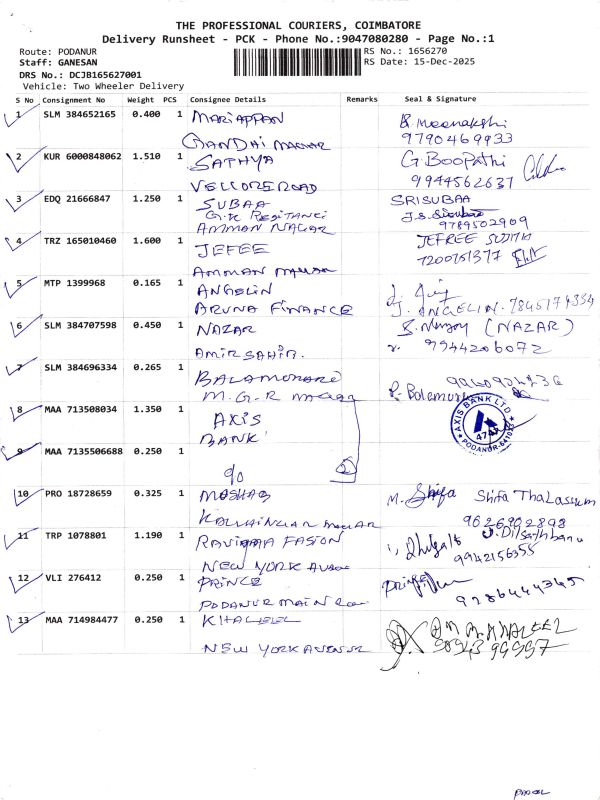 THE PROFESSIONAL COURIERS, COIMBATORE
Delivery Runsheet - PCK - Phone No.:9047080280 - Page No.:1
Route: PODANUR
Staff: GANESAN
DRS No.: DCJB165627001
Vehicle: Two Wheeler Delivery
RS No.: 1656270
RS Date: 15-Dec-2025
S No Consignment No Weight PCS Consignee Details Remarks Seal & Signature
1 SLM 384652165 0.400 1 MARIAPPAN
GANDHI NAGAR
R. Meenakshi
9790469933
2 KUR 6000848062 1.510 1 SATHYA
VELLORE ROAD
G. BOOPATHI
9944562637
3 EDQ 21666847 1.250 1 SUBAA
G.K
AMMAN NAGAR
SRISUBAA
9789502909
4 TRZ 165010460 1.600 1 JEFEE
AMMAN NAGAR
JEFREE SUDITH
7200751377
5 MTP 1399968 0.165 1 ANGELIN
ARUNA FINANCE
J. ANGELIN. 7845174334
6 SLM 384707598 0.450 1 NAZAR
AMIR SAHIR.
(NAZAR)
9944206072
7 SLM 384696334 0.265 1
M.G.R NAGAR
8 MAA 713508034 1.350 1 AXIS
BANK
AXIS BANK LTD
PODANUR
9 MAA 7135506688 0.250 1
10 PRO 18728659 0.325 1
M. Shifa Shifa Thalassum
9626902898
11 TRP 1078801 1.190 1 FASION
NEW YORK
J. Dilsathbanu
9942156355
12 VLI 276412 0.250 1 PRINCE
PODANUR MAIN
9286444345
13 MAA 714984477 0.250 1 KHALEEL
NEW YORK AVENUE
KHALEEL